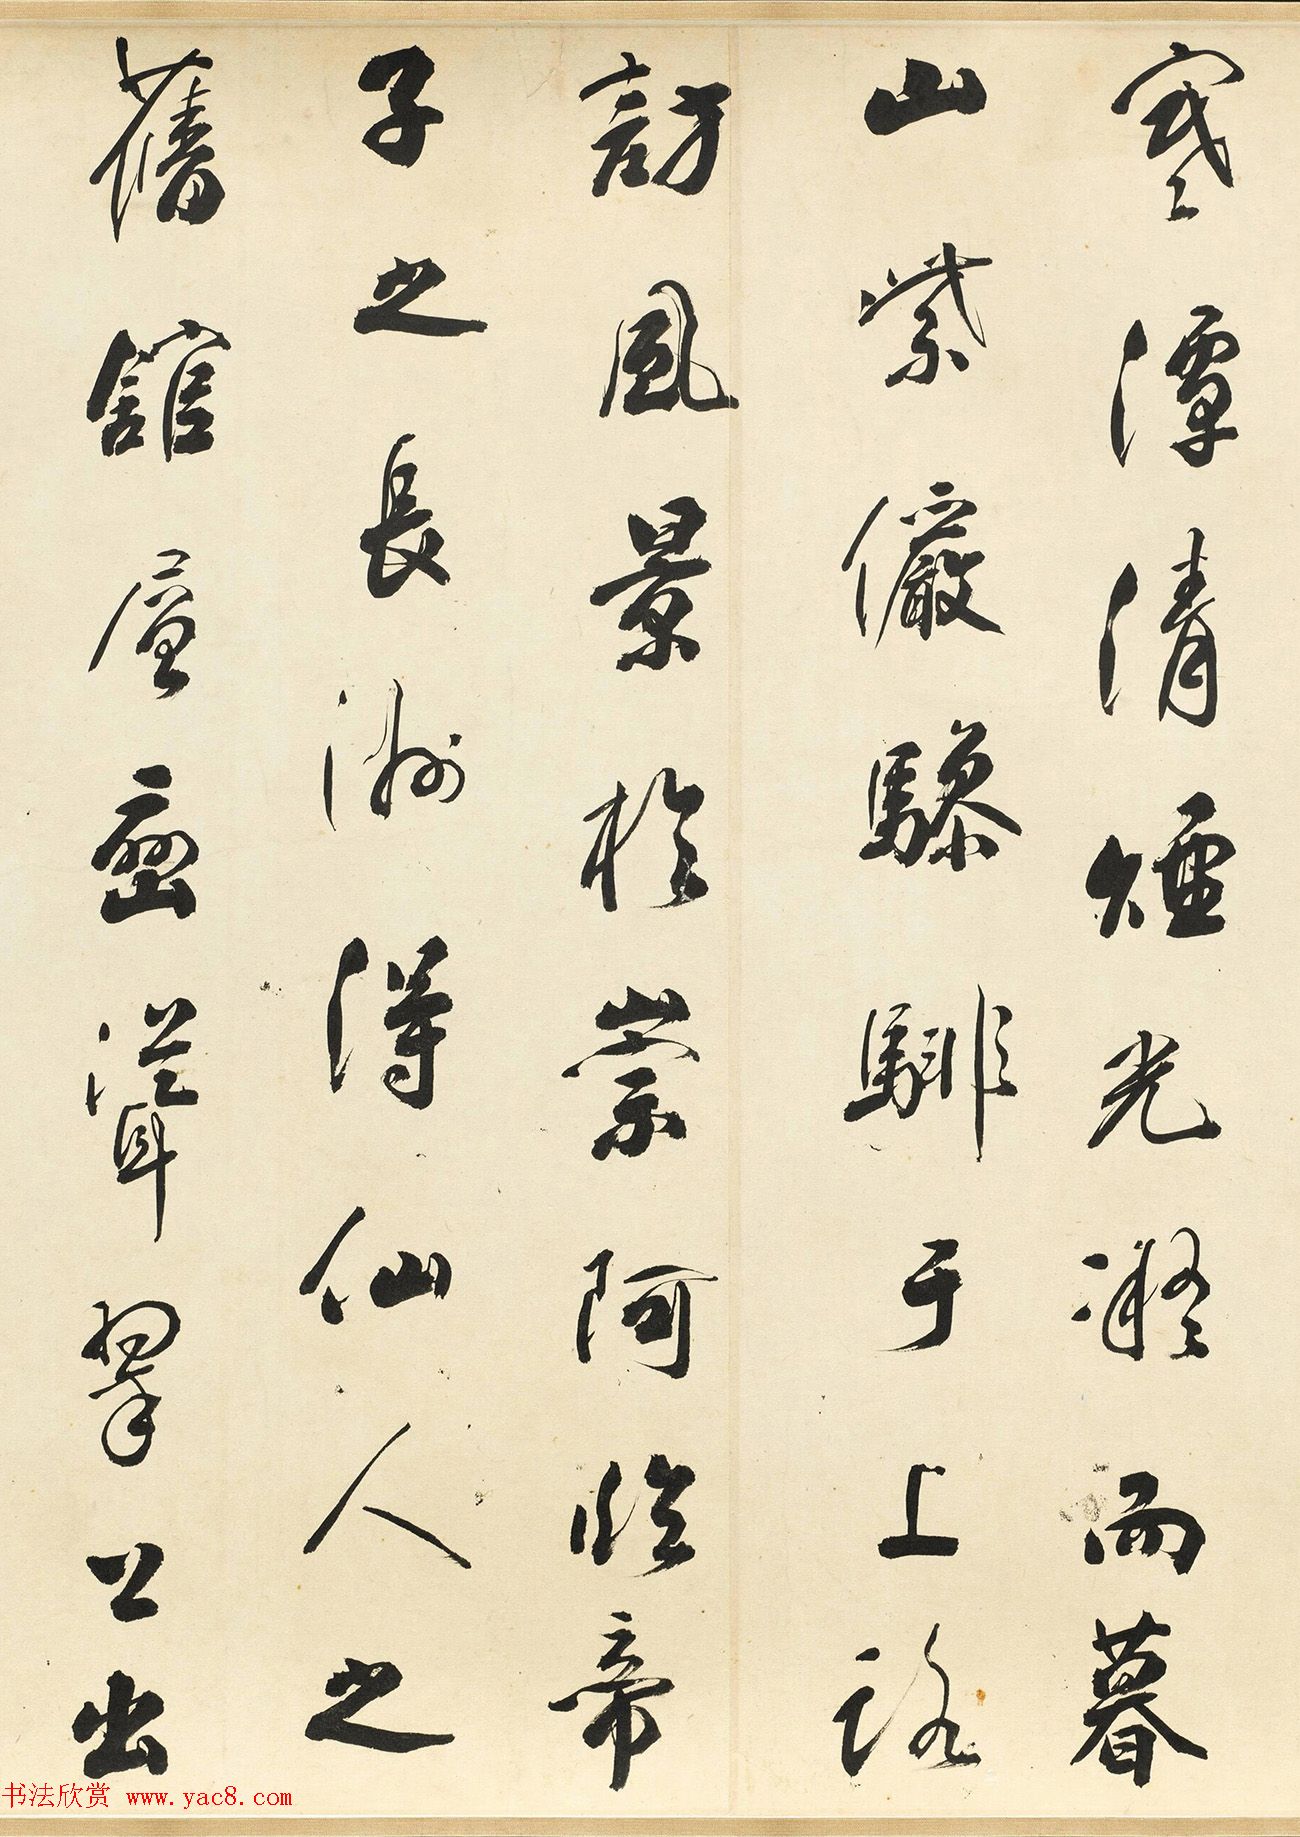 寒潭清煙光凝而暮
山紫儼驂騑于上路
訪風景於崇阿臨帝
子之長洲得仙人之
舊館層巒聳翠上出
书法欣赏 www.yac8.com